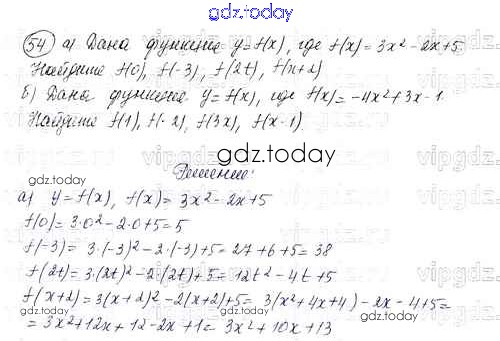 gdz.today
54 а) Дана функция y=f(x), где f(x)=3x²-2x+5
Найдите f(0), f(-3), f(2t), f(x+2)
б) Дана функция y=f(x), где f(x)=-4x²+3x-1.
Найдите f(1), f(-2), f(3x), f(x-1).
gdz.today
Решение:
gdz.today
а) y=f(x), f(x)=3x²-2x+5
f(0)=3·0²-2·0+5=5
f(-3)=3·(-3)²-2·(-3)+5=27+6+5=38
f(2t)=3·(2t)²-2·(2t)+5=12t²-4t+5
f(x+2)=3(x+2)²-2(x+2)+5=3(x²+4x+4)-2x-4+5=
gdz.today
gdz.today
=3x²+12x+12-2x+1=3x²+10x+13